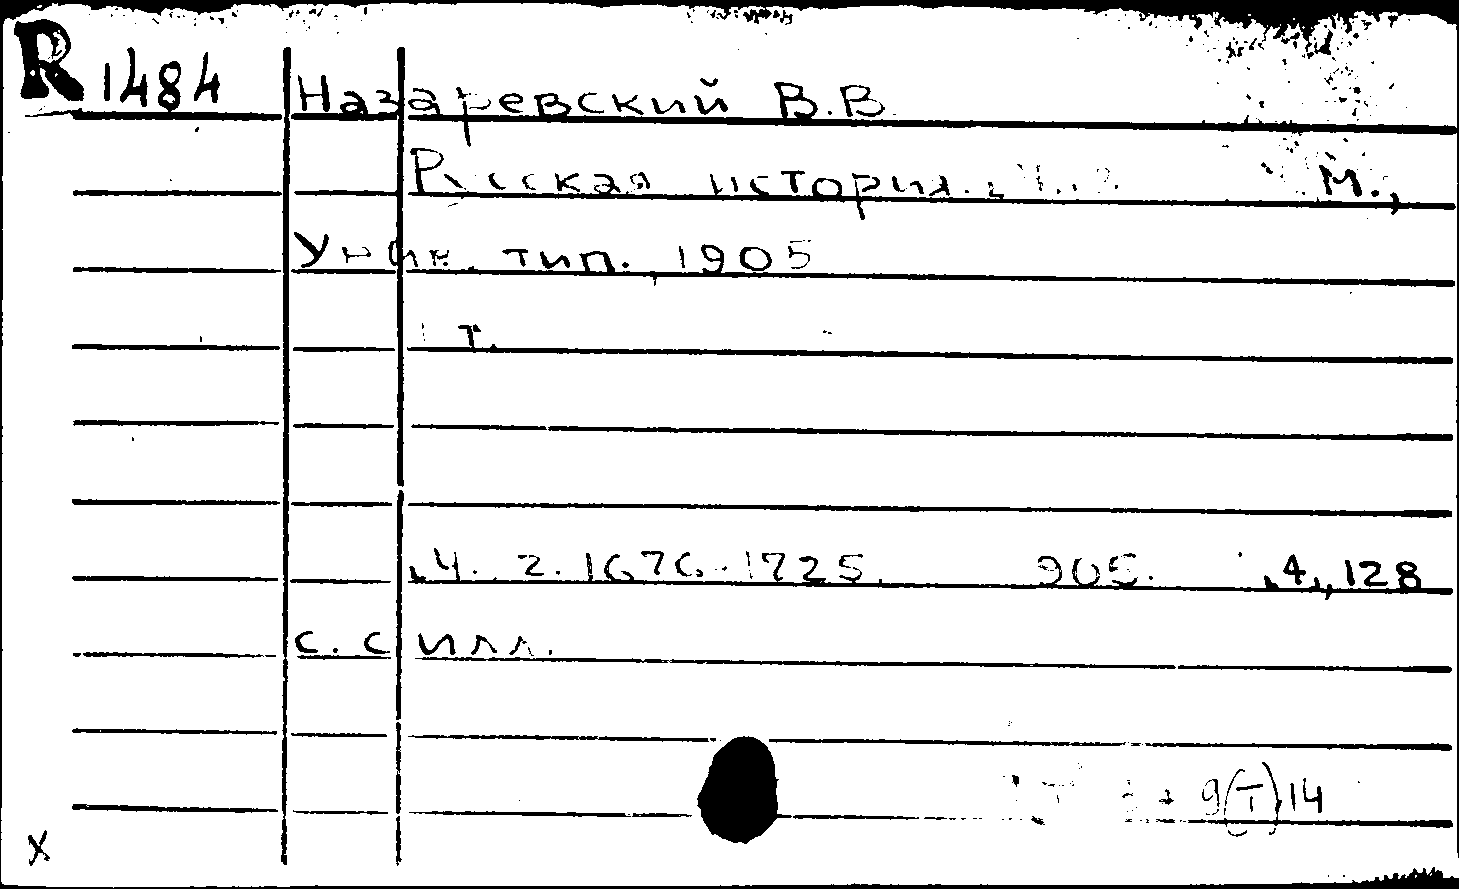 R 1484 Назаревский В.В.
Русская история. М.,
Унив. тип., 1905
1 т.
Ч. 2. 1676-1725. 905. ,4,, 128
с. с илл.
9(Т)14
X